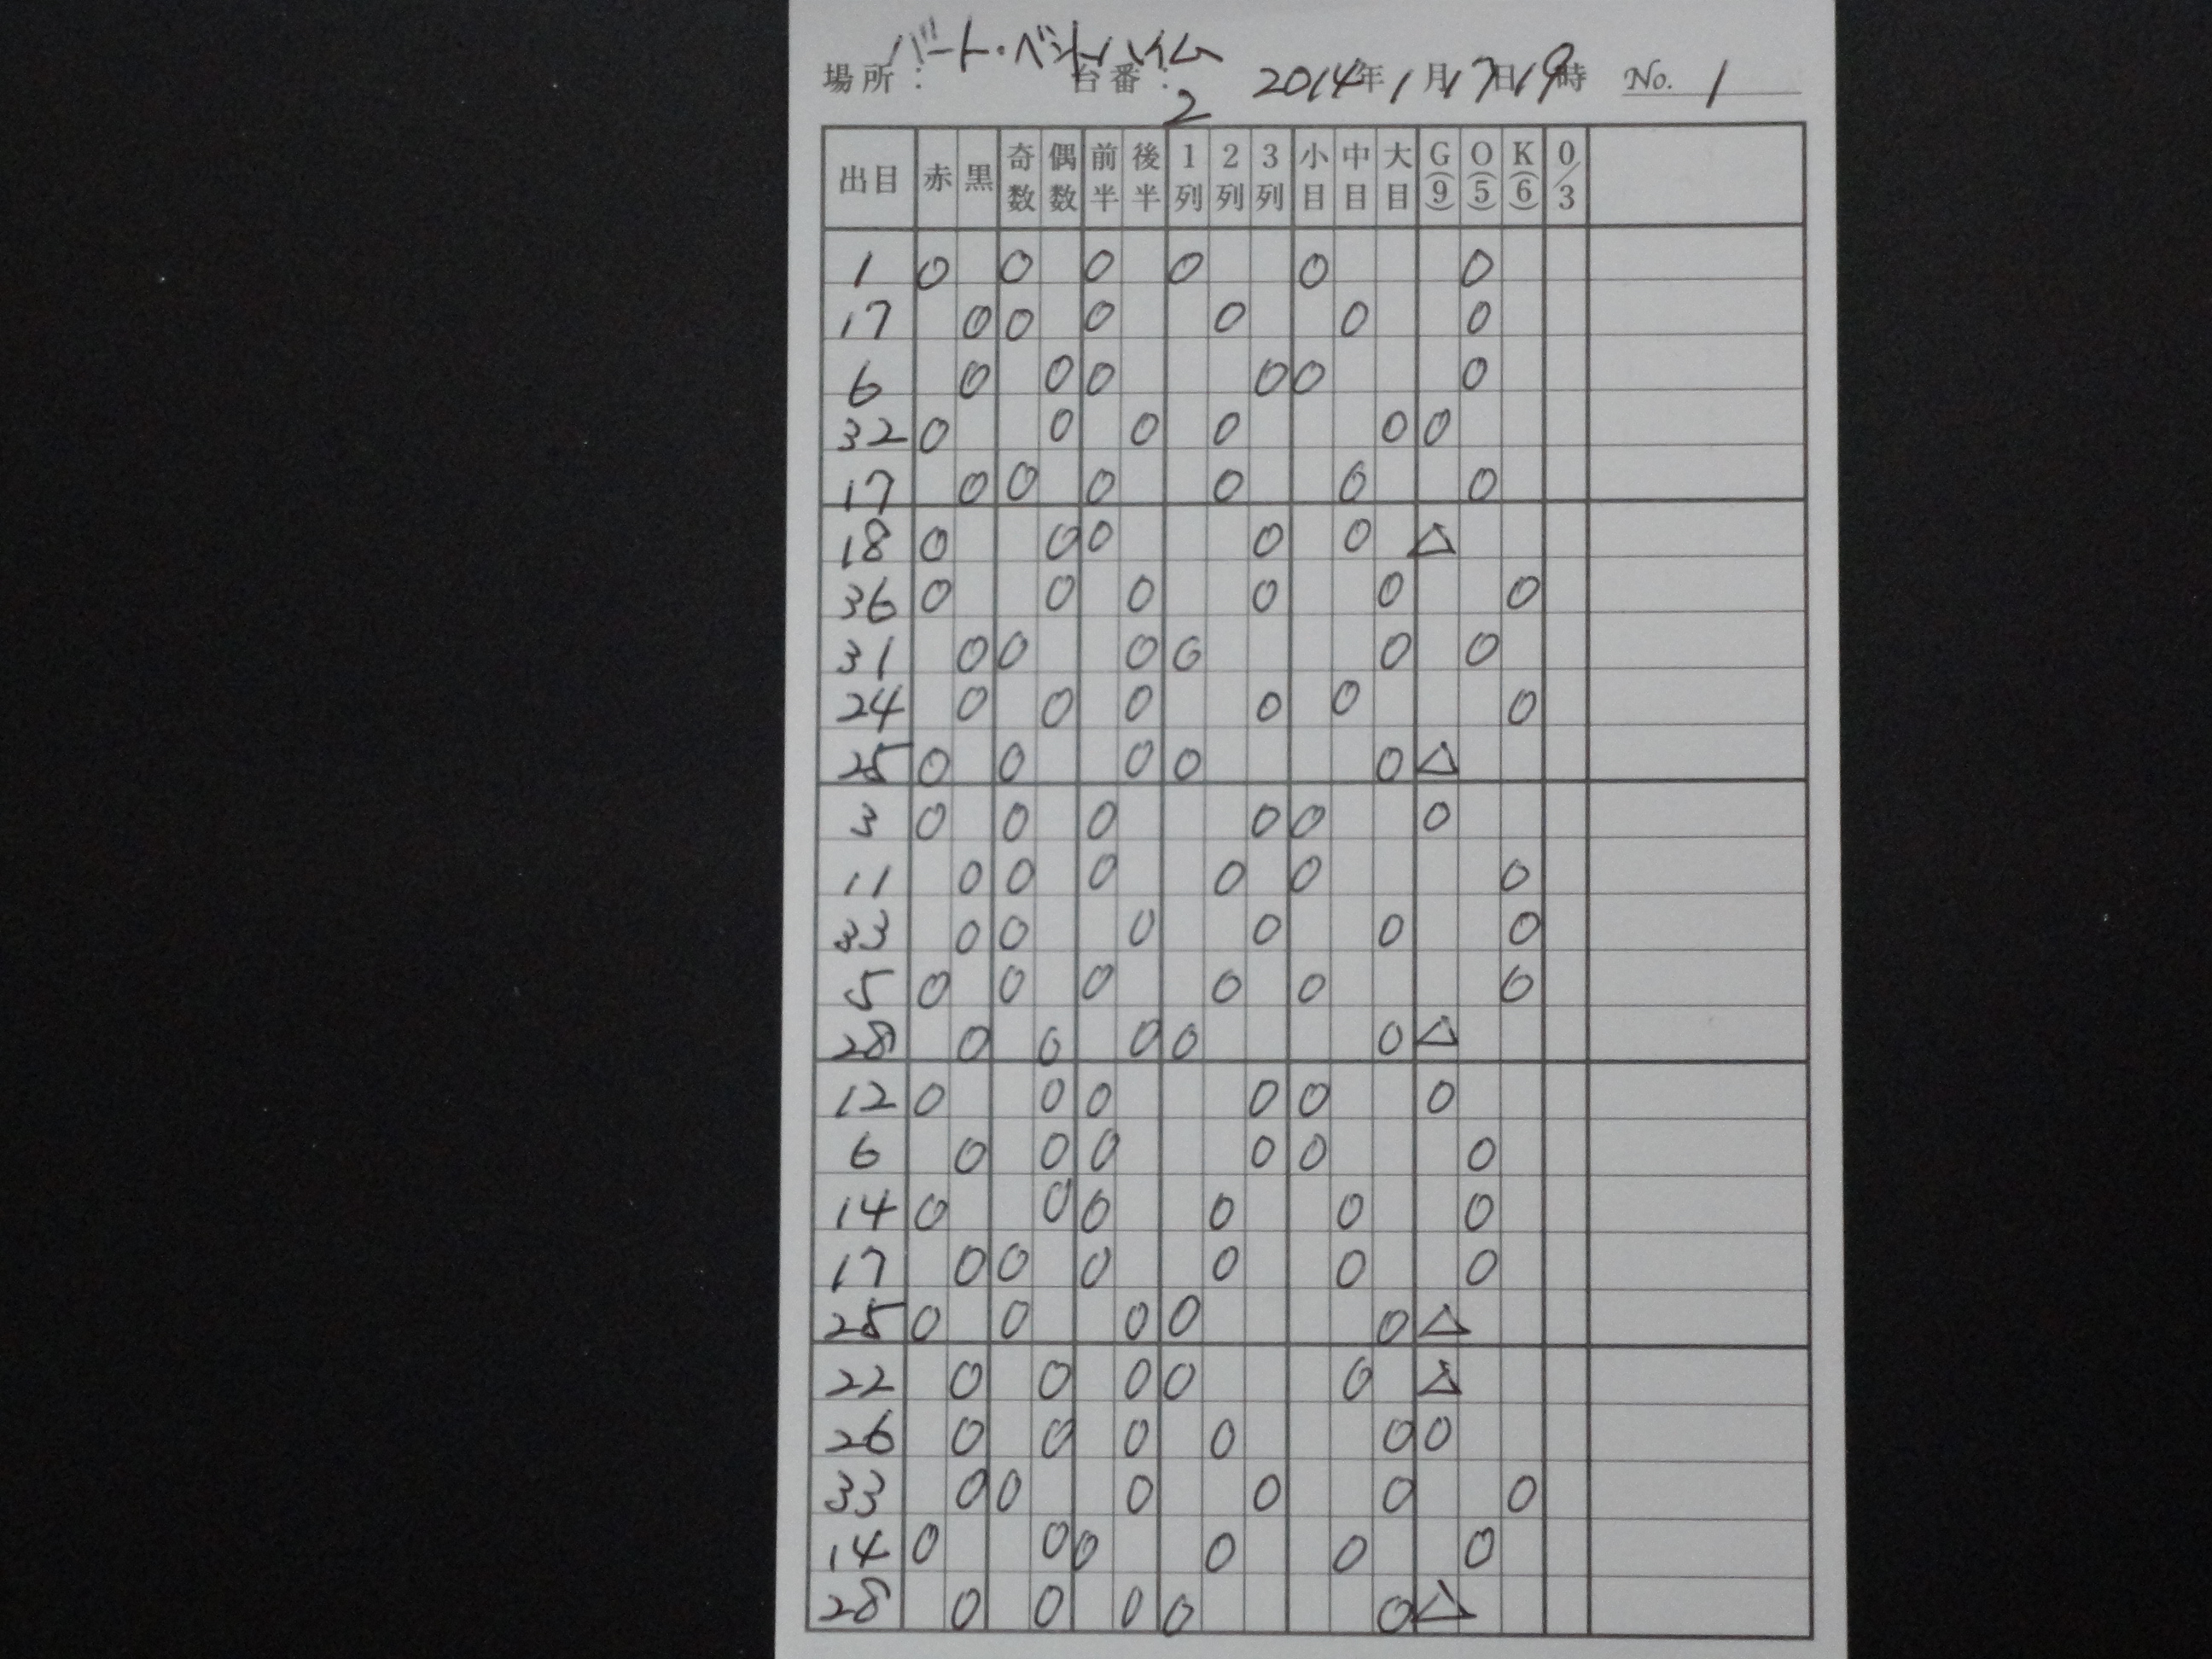 場所： バート・ベントハイム 台番： 2 2014年1月17日19時 No. 1
出目 赤 黒 奇数 偶数 前半 後半 1列 2列 3列 小目 中目 大目 G(9) O(5) K(6) 0/3
1 0 0 0 0 0 0
17 0 0 0 0 0 0
6 0 0 0 0 0 0
32 0 0 0 0 0 0
17 0 0 0 0 0 0
18 0 0 0 0 0 △
36 0 0 0 0 0 0
31 0 0 0 0 0 0
24 0 0 0 0 0 0
25 0 0 0 0 0 △
3 0 0 0 0 0 0
11 0 0 0 0 0 0
33 0 0 0 0 0 0
5 0 0 0 0 0 0
28 0 0 0 0 0 △
12 0 0 0 0 0 0
6 0 0 0 0 0 0
14 0 0 0 0 0 0
17 0 0 0 0 0 0
25 0 0 0 0 0 △
22 0 0 0 0 0 △
26 0 0 0 0 0 0
33 0 0 0 0 0 0
14 0 0 0 0 0 0
28 0 0 0 0 0 △